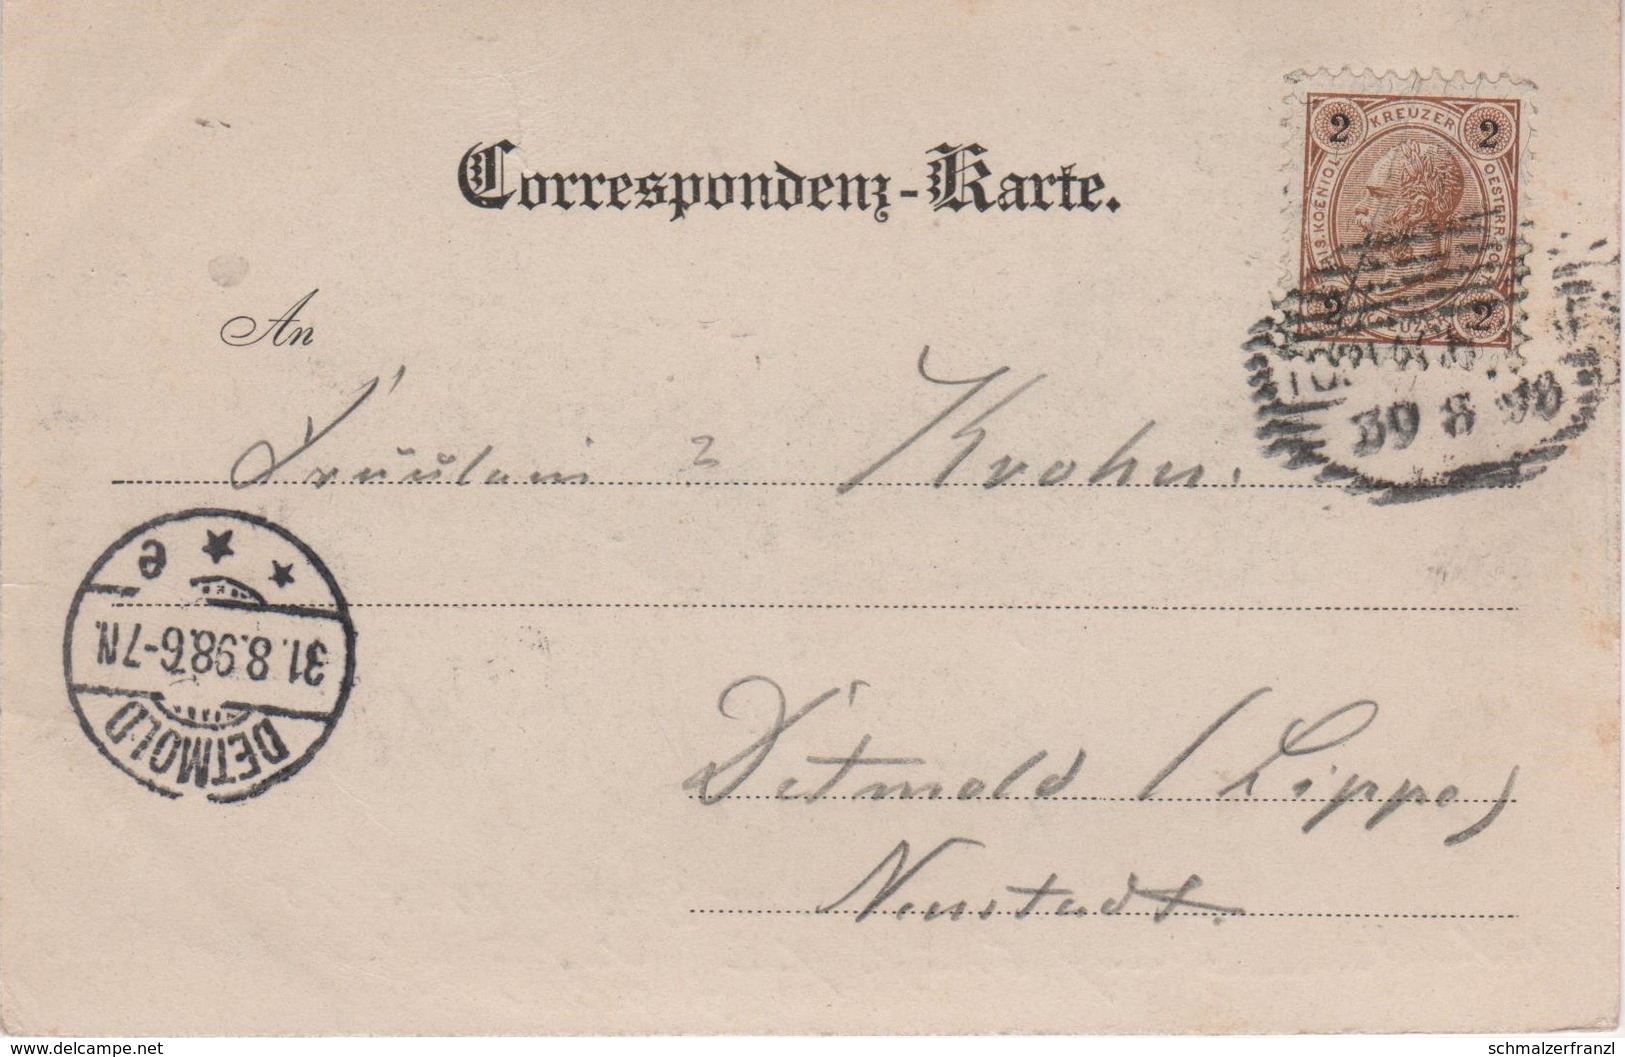 Correspondenz-Karte.
2 KREUZER 2
KAIS.KOENIGL. OESTERR.POST
2 KREUZER 2
30 8 98
An
Fräulein Krohn.
DETMOLD
31.8.98.6-7N.
* * e
Detmold (Lippe)
Neustadt.
www.delcampe.net
schmalzerfranzl